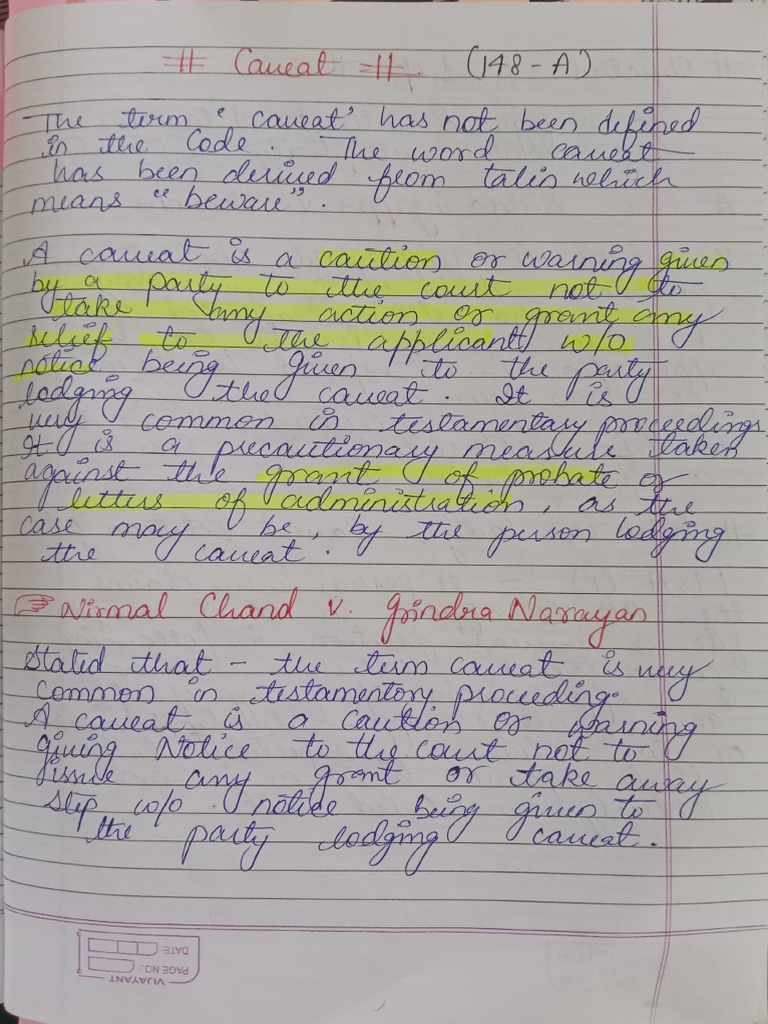 # Caveat #. (148-A)
The term 'caveat' has not been defined
in the Code. The word caveat
has been derived from talin which
means "beware".
A caveat is a caution or warning given
by a party to the court not to
take any action or grant any
relief to the applicant w/o
notice being given to the party
lodging the caveat. It is
very common in testamentary proceedings
It is a precautionary measure taken
against the grant of probate or
letters of administration, as the
case may be, by the person lodging
the caveat.
Nirmal Chand v. Grindra Narayan
Stated that - the term caveat is very
common in testamentory proceeding.
A caveat is a caution or warning
giving Notice to the court not to
issue any grant or take away
step w/o notice being given to
the party lodging caveat.
VIJAYANT
PAGE NO.:
DATE: